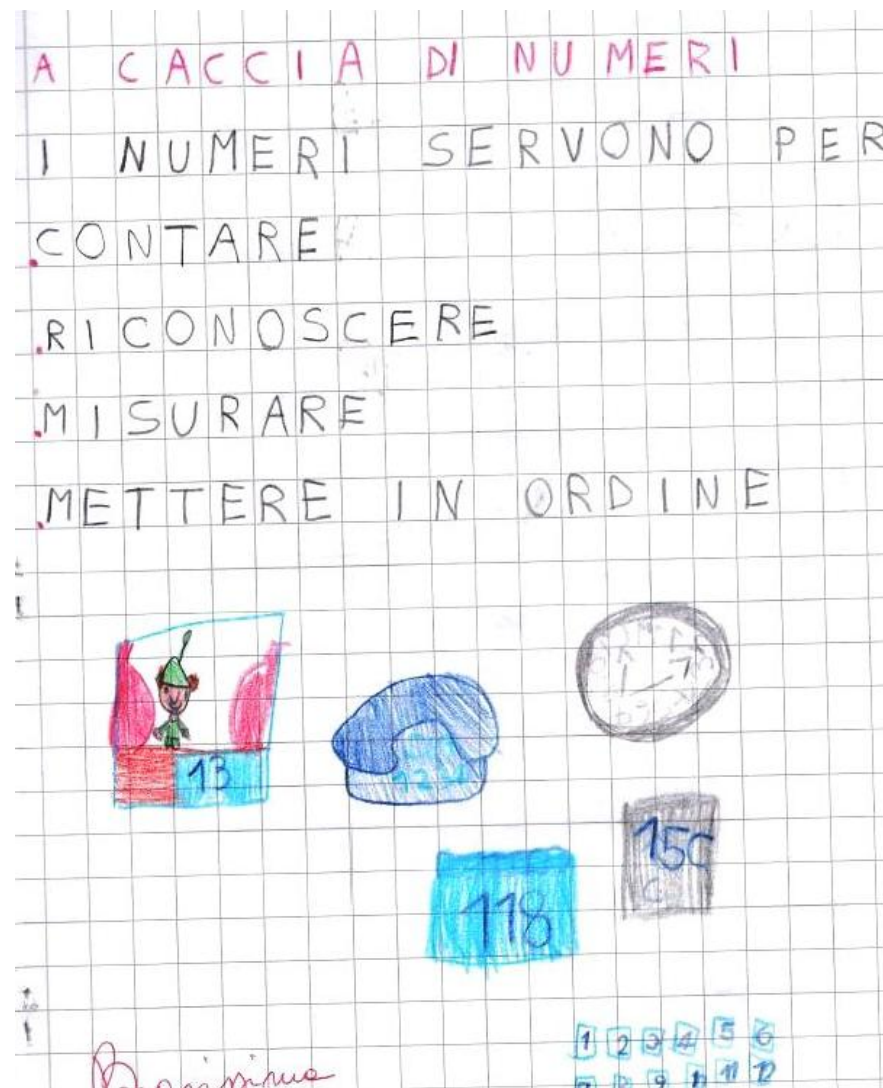 A CACCIA DI NUMERI
I NUMERI SERVONO PER
.CONTARE
.RICONOSCERE
.MISURARE
.METTERE IN ORDINE
13
118
15C
1 2 3 4 5 6
7 8 9 11 12